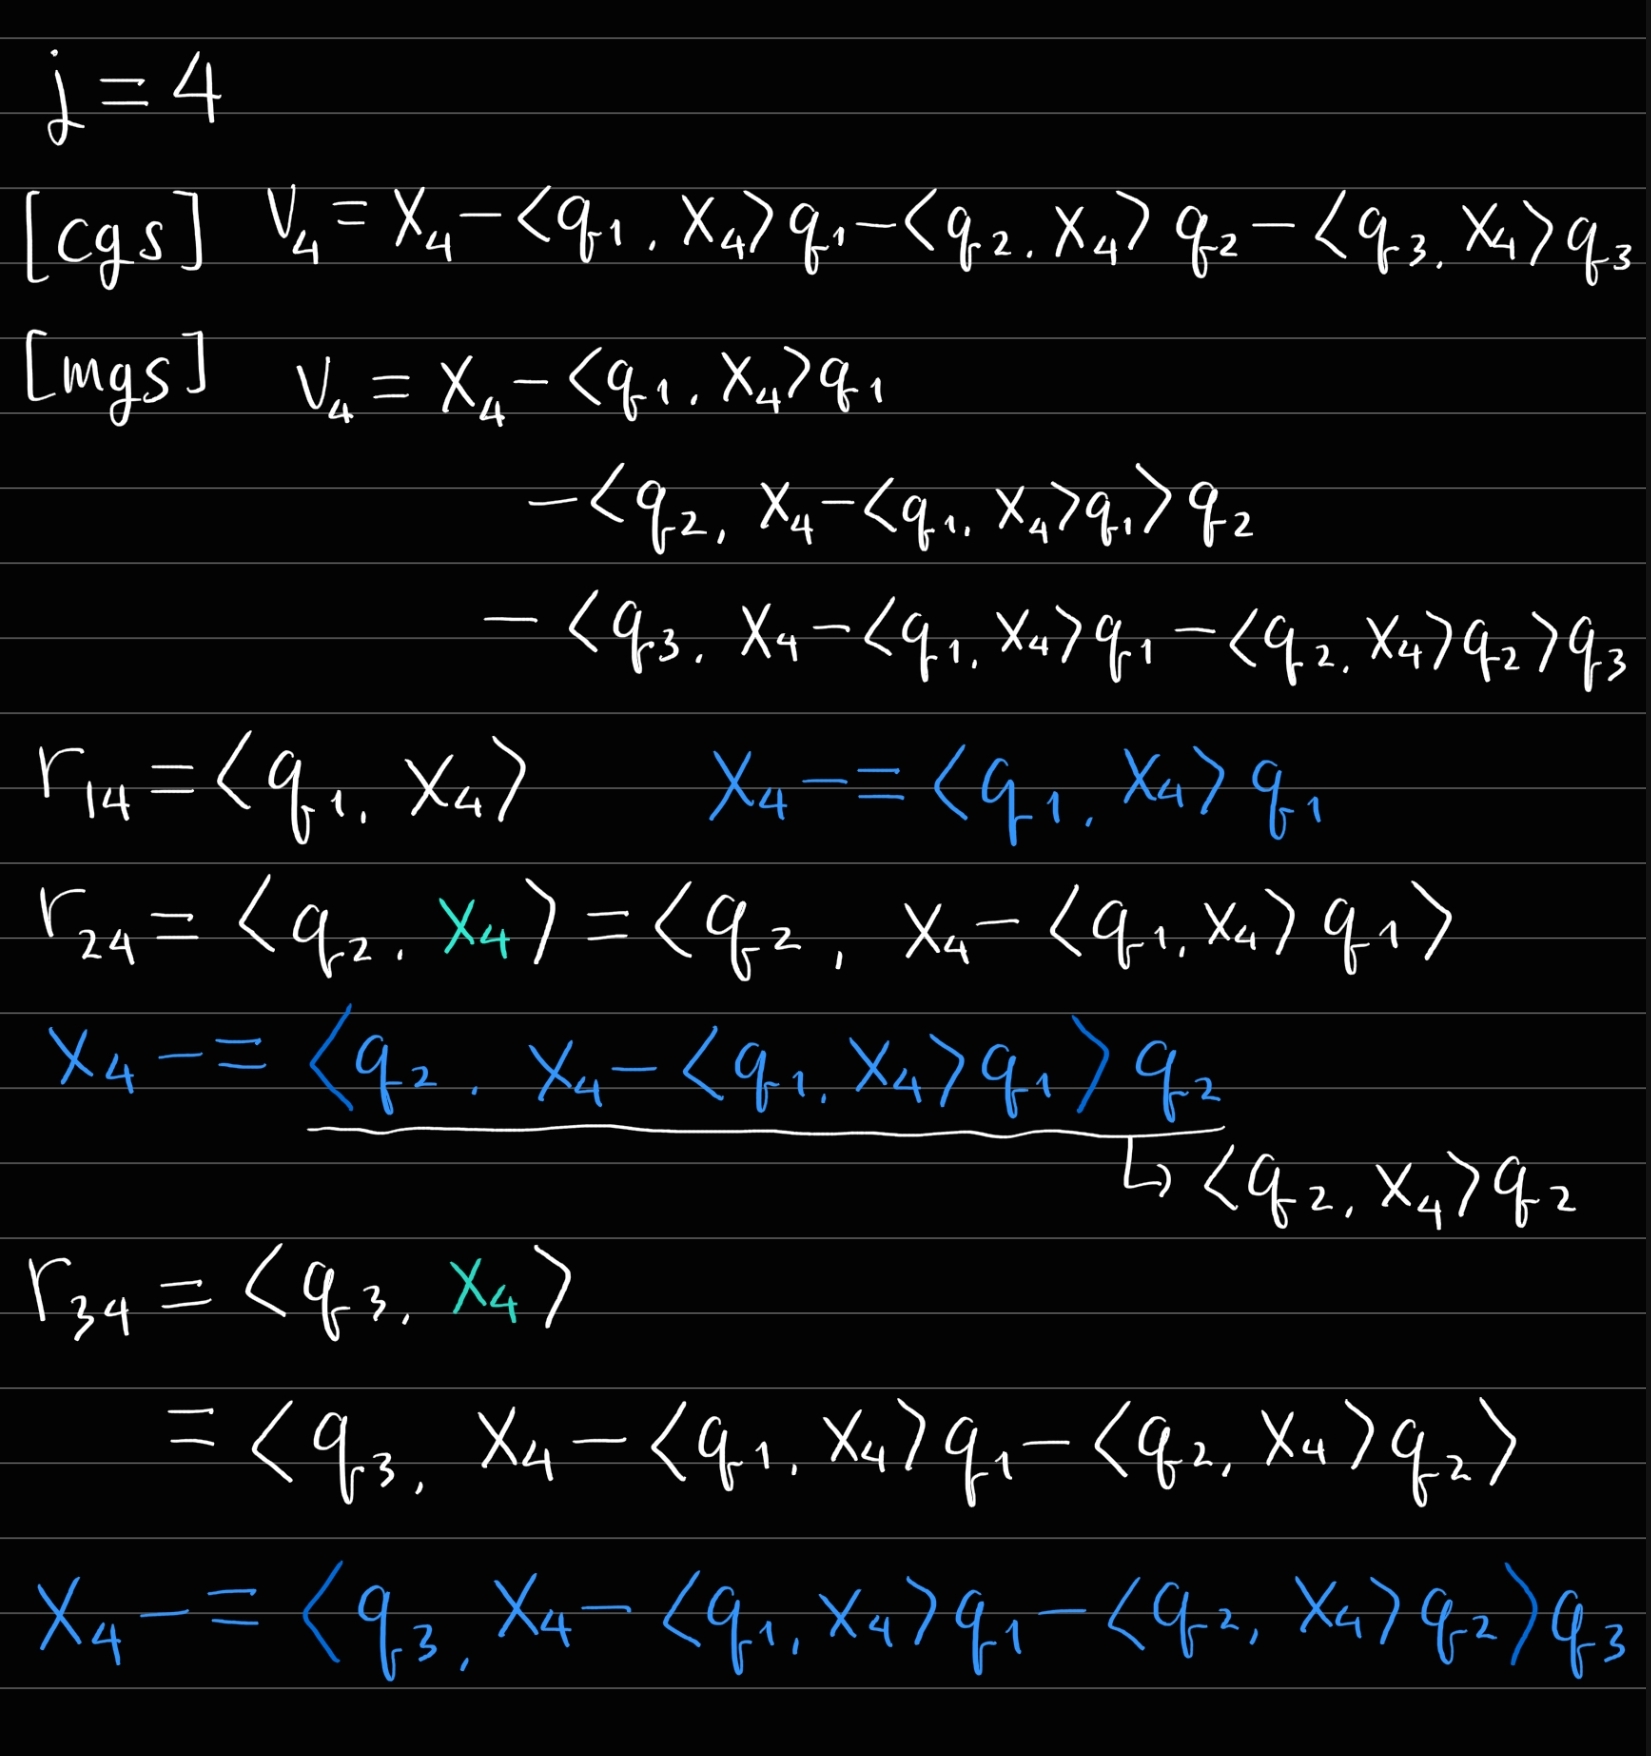 j = 4
[cgs] V₄ = X₄ - <q₁, X₄>q₁ - <q₂, X₄>q₂ - <q₃, X₄>q₃
[mgs] V₄ = X₄ - <q₁, X₄>q₁
- <q₂, X₄ - <q₁, X₄>q₁>q₂
- <q₃, X₄ - <q₁, X₄>q₁ - <q₂, X₄>q₂>q₃
r₁₄ = <q₁, X₄> X₄ -= <q₁, X₄>q₁
r₂₄ = <q₂, X₄> = <q₂, X₄ - <q₁, X₄>q₁>
X₄ -= <q₂, X₄ - <q₁, X₄>q₁>q₂
↳ <q₂, X₄>q₂
r₃₄ = <q₃, X₄>
= <q₃, X₄ - <q₁, X₄>q₁ - <q₂, X₄>q₂>
X₄ -= <q₃, X₄ - <q₁, X₄>q₁ - <q₂, X₄>q₂>q₃